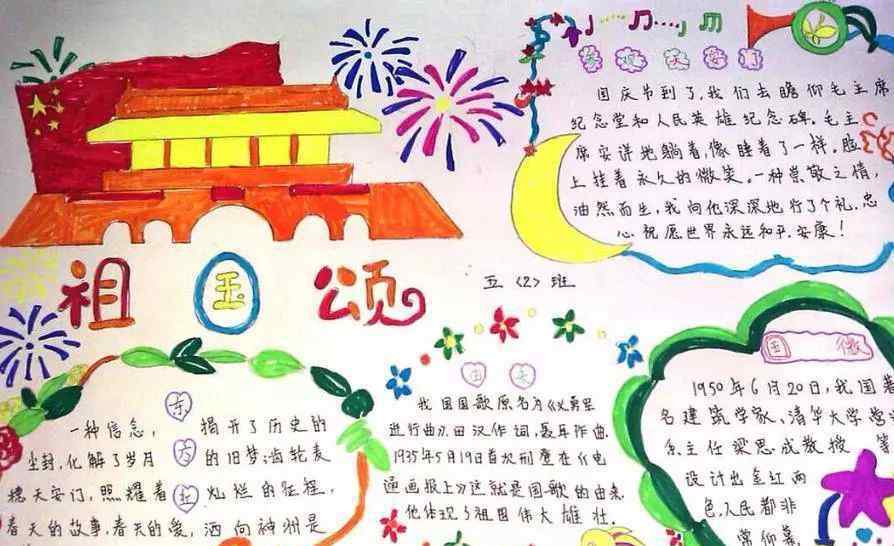 参观天安门
国庆节到了,我们去瞻仰毛主席
纪念堂和人民英雄纪念碑。毛主
席安详地躺着,像睡着了一样。脸
上挂着永久的微笑。一种崇敬之情,
油然而生,我向他深深地行了个礼,忠
心祝愿世界永远和平、安康!
祖国颂
五〈2〉班
东方红
一种信念,揭开了历史的
尘封,化解了岁月的旧梦;齿轮麦
穗天安门,照耀着灿烂的征程,
春天的故事,春天的爱,洒向神州是
国歌
我国国歌原名为《义勇军
进行曲》,田汉作词,聂耳作曲.
1935年5月19日首次刊登在《电
通画报上》这就是国歌的由来.
他体现了祖国伟大雄壮.
国徽
1950年6月20日,我国著
名建筑学家、清华大学营
系主任梁思成教授等
设计出金红两
色,人民都非
常仰慕